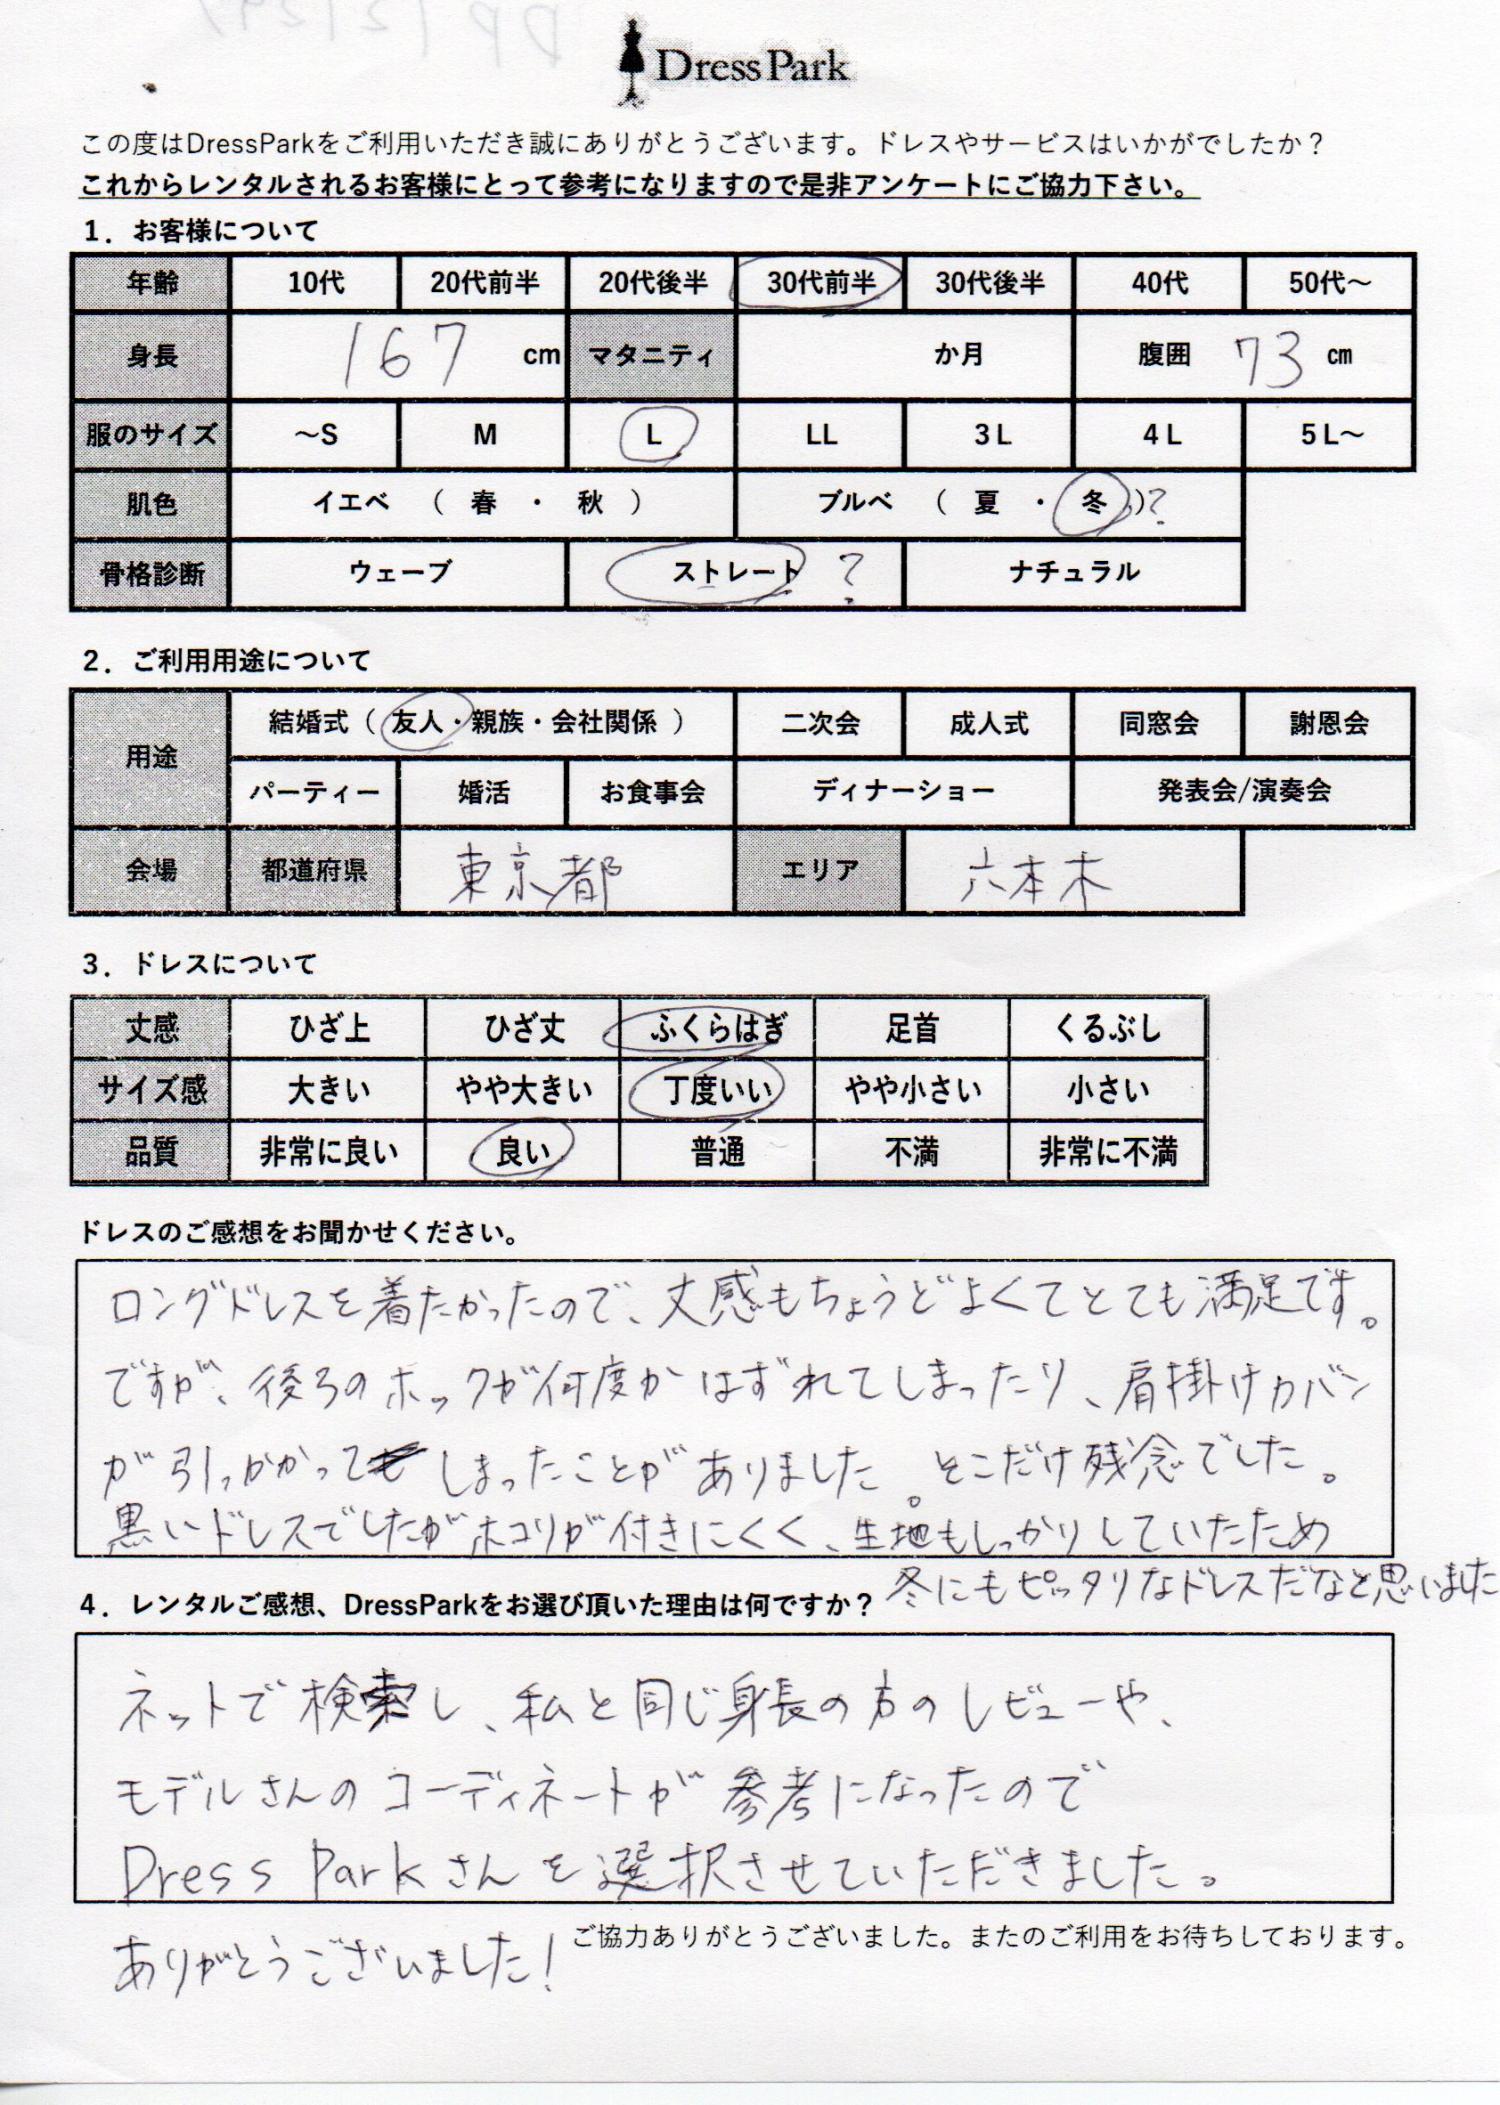 Dress Park
この度はDressParkをご利用いただき誠にありがとうございます。ドレスやサービスはいかがでしたか？
これからレンタルされるお客様にとって参考になりますので是非アンケートにご協力下さい。
1．お客様について
年齢 10代 20代前半 20代後半 30代前半 30代後半 40代 50代～
身長 167 cm マタニティ か月 腹囲 73 cm
服のサイズ ～S M L LL 3L 4L 5L～
肌色 イエベ （ 春 ・ 秋 ） ブルベ （ 夏 ・ 冬 ）?
骨格診断 ウェーブ ストレート ? ナチュラル
2．ご利用用途について
用途 結婚式（ 友人・親族・会社関係 ） 二次会 成人式 同窓会 謝恩会
パーティー 婚活 お食事会 ディナーショー 発表会/演奏会
会場 都道府県 東京都 エリア 六本木
3．ドレスについて
丈感 ひざ上 ひざ丈 ふくらはぎ 足首 くるぶし
サイズ感 大きい やや大きい 丁度いい やや小さい 小さい
品質 非常に良い 良い 普通 不満 非常に不満
ドレスのご感想をお聞かせください。
ロングドレスを着たかったので、丈感もちょうどよくてとても満足です。
ですが、後ろのホックが何度かはずれてしまったり、肩掛けカバン
が引っかかってしまったことがありました。そこだけ残念でした。
黒いドレスでしたがホコリが付きにくく、生地もしっかりしていたため
冬にもピッタリなドレスだなと思いました
4．レンタルご感想、DressParkをお選び頂いた理由は何ですか？
ネットで検索し、私と同じ身長の方のレビューや、
モデルさんのコーディネートが参考になったので
Dress Parkさんを選択させていただきました。
ありがとうございました！
ご協力ありがとうございました。またのご利用をお待ちしております。